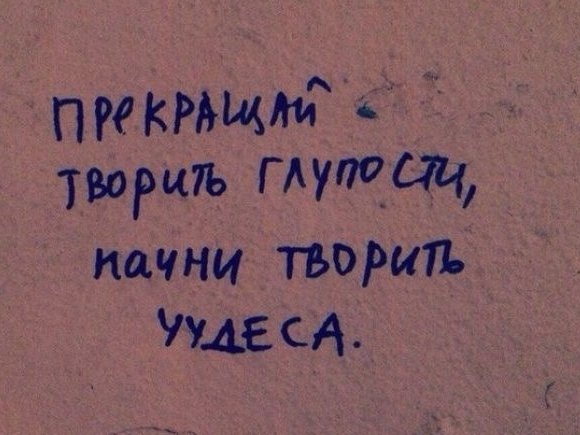 ПРЕКРАЩАЙ
ТВОРИТЬ ГЛУПОСТИ,
НАЧНИ ТВОРИТЬ
ЧУДЕСА.